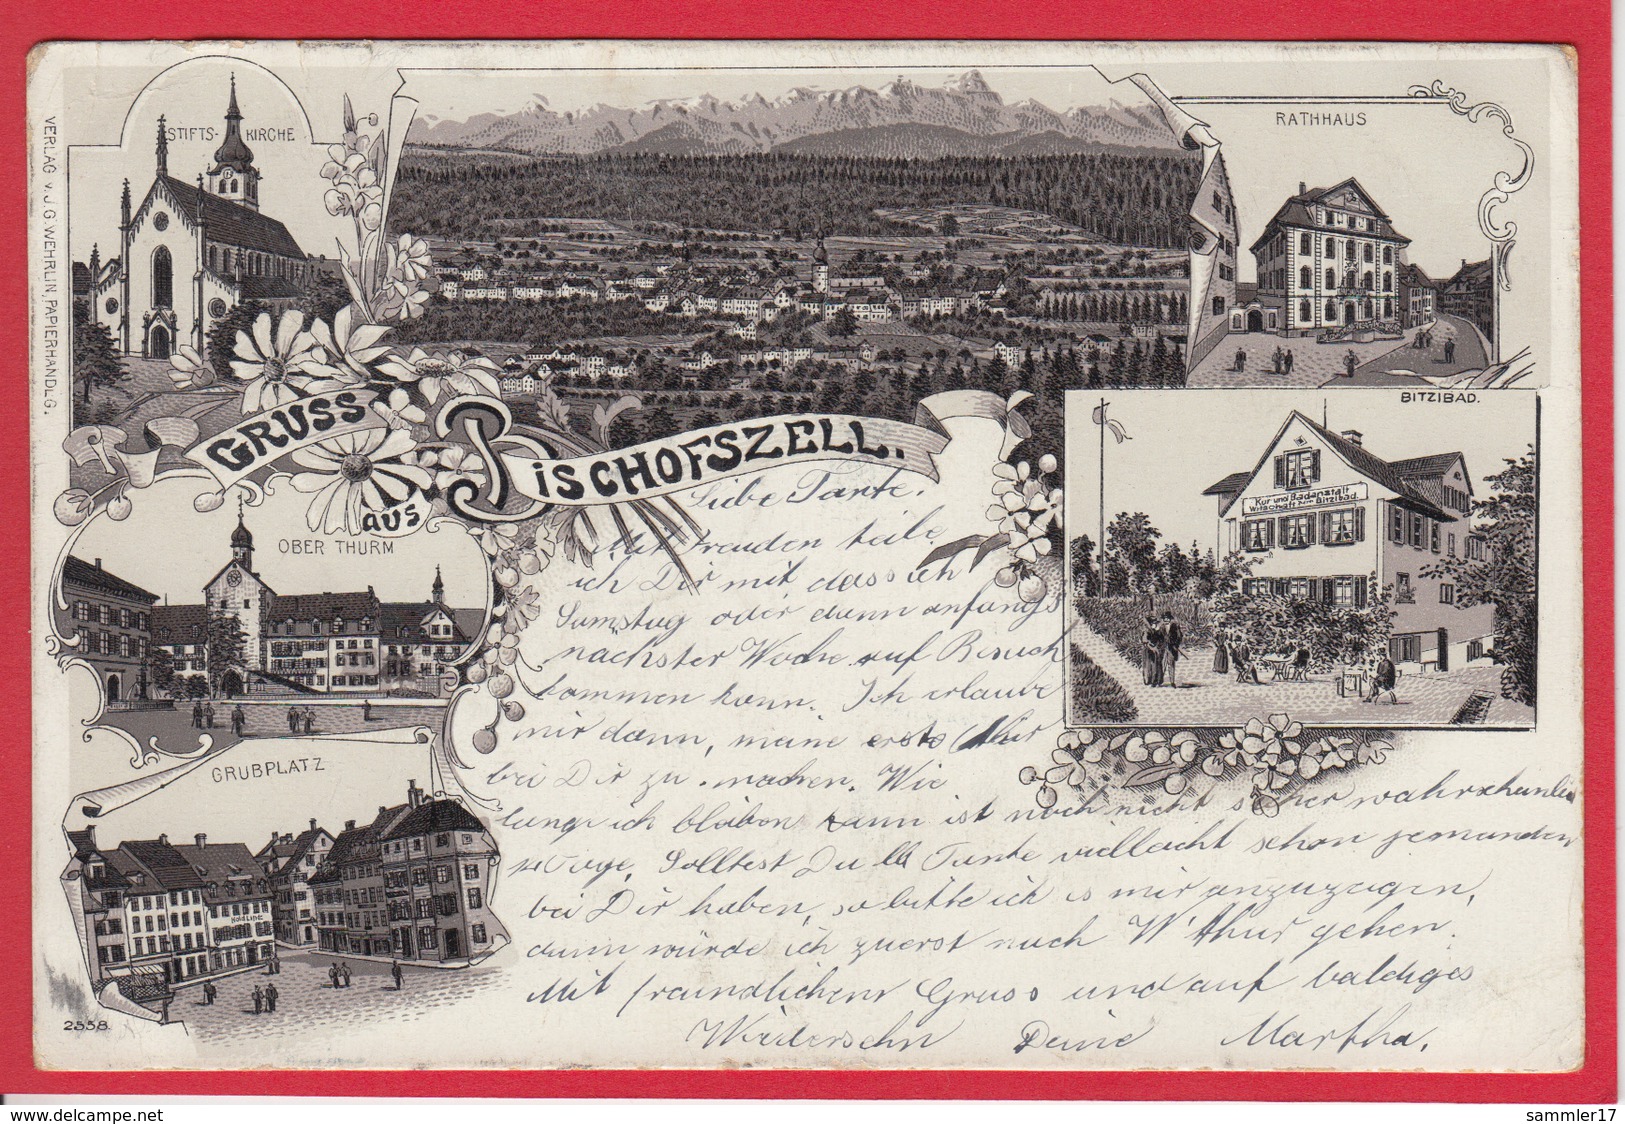 STIFTS-KIRCHE
RATHHAUS
VERLAG v. J. G. WEHRLIN, PAPIERHANDLG.
BITZIBAD.
Kur und Badanstalt
Wirtschaft zum Bitzibad.
GRUSS
AUS
BISCHOFSZELL.
OBER THURM
GRUBPLATZ
2558.
Liebe Tante.
Mit Freuden teile
ich Dir mit dass ich
Samstag oder dann anfangs
nächster Woche auf Besuch
kommen kann. Ich erlaube
mir dann, meine erste
bei Dir zu machen. Wie
lange ich bleiben kann ist noch nicht sicher wahrscheinlich
Tage. Solltest Du lb Tante vielleicht schon jemanden
bei Dir haben, so bitte ich es mir anzuzeigen,
dann würde ich zuerst nach W'thur gehen.
Mit freundlichem Gruss und auf baldiges
Wiedersehn Deine Martha.
delcampe.net
sammler17